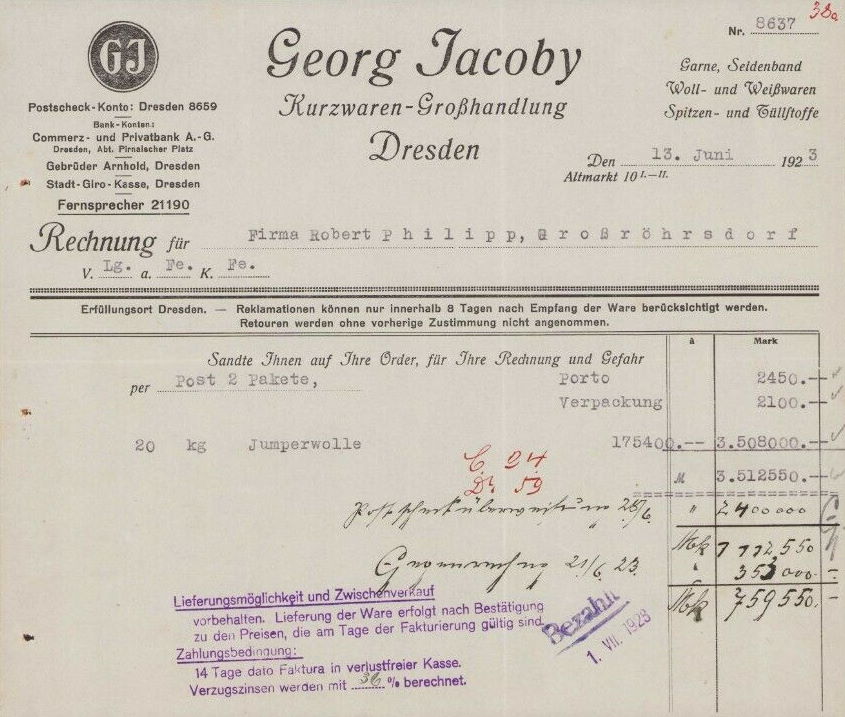 GJ
Postscheck-Konto: Dresden 8659
Bank-Konten:
Commerz- und Privatbank A.-G.
Dresden, Abt. Pirnaischer Platz
Gebrüder Arnhold, Dresden
Stadt-Giro-Kasse, Dresden
Fernsprecher 21190
Georg Jacoby
Kurzwaren-Großhandlung
Dresden
38a
Nr. 8637
Garne, Seidenband
Woll- und Weißwaren
Spitzen- und Tüllstoffe
Den 13. Juni 1923
Altmarkt 10 I.-II.
Rechnung für Firma Robert Philipp, Großröhrsdorf
V. Lg. a. Fe. K. Fe.
Erfüllungsort Dresden. — Reklamationen können nur innerhalb 8 Tagen nach Empfang der Ware berücksichtigt werden.
Retouren werden ohne vorherige Zustimmung nicht angenommen.
à Mark
Sandte Ihnen auf Ihre Order, für Ihre Rechnung und Gefahr
per Post 2 Pakete, Porto 2450.--
Verpackung 2100.--
20 kg Jumperwolle 175400.-- 3.508000.--
M 3.512550.--
C. 24
Dr. 59
Postschecküberweisung 28/6. " 2400000
Mk 1112550
Gegenrechng 21/6. 23. " 353000.-
Mk 759550.-
Lieferungsmöglichkeit und Zwischenverkauf
vorbehalten. Lieferung der Ware erfolgt nach Bestätigung
zu den Preisen, die am Tage der Fakturierung gültig sind.
Zahlungsbedingung:
14 Tage dato Faktura in verlustfreier Kasse.
Verzugszinsen werden mit 36 % berechnet.
Bezahlt
1. VII. 1923